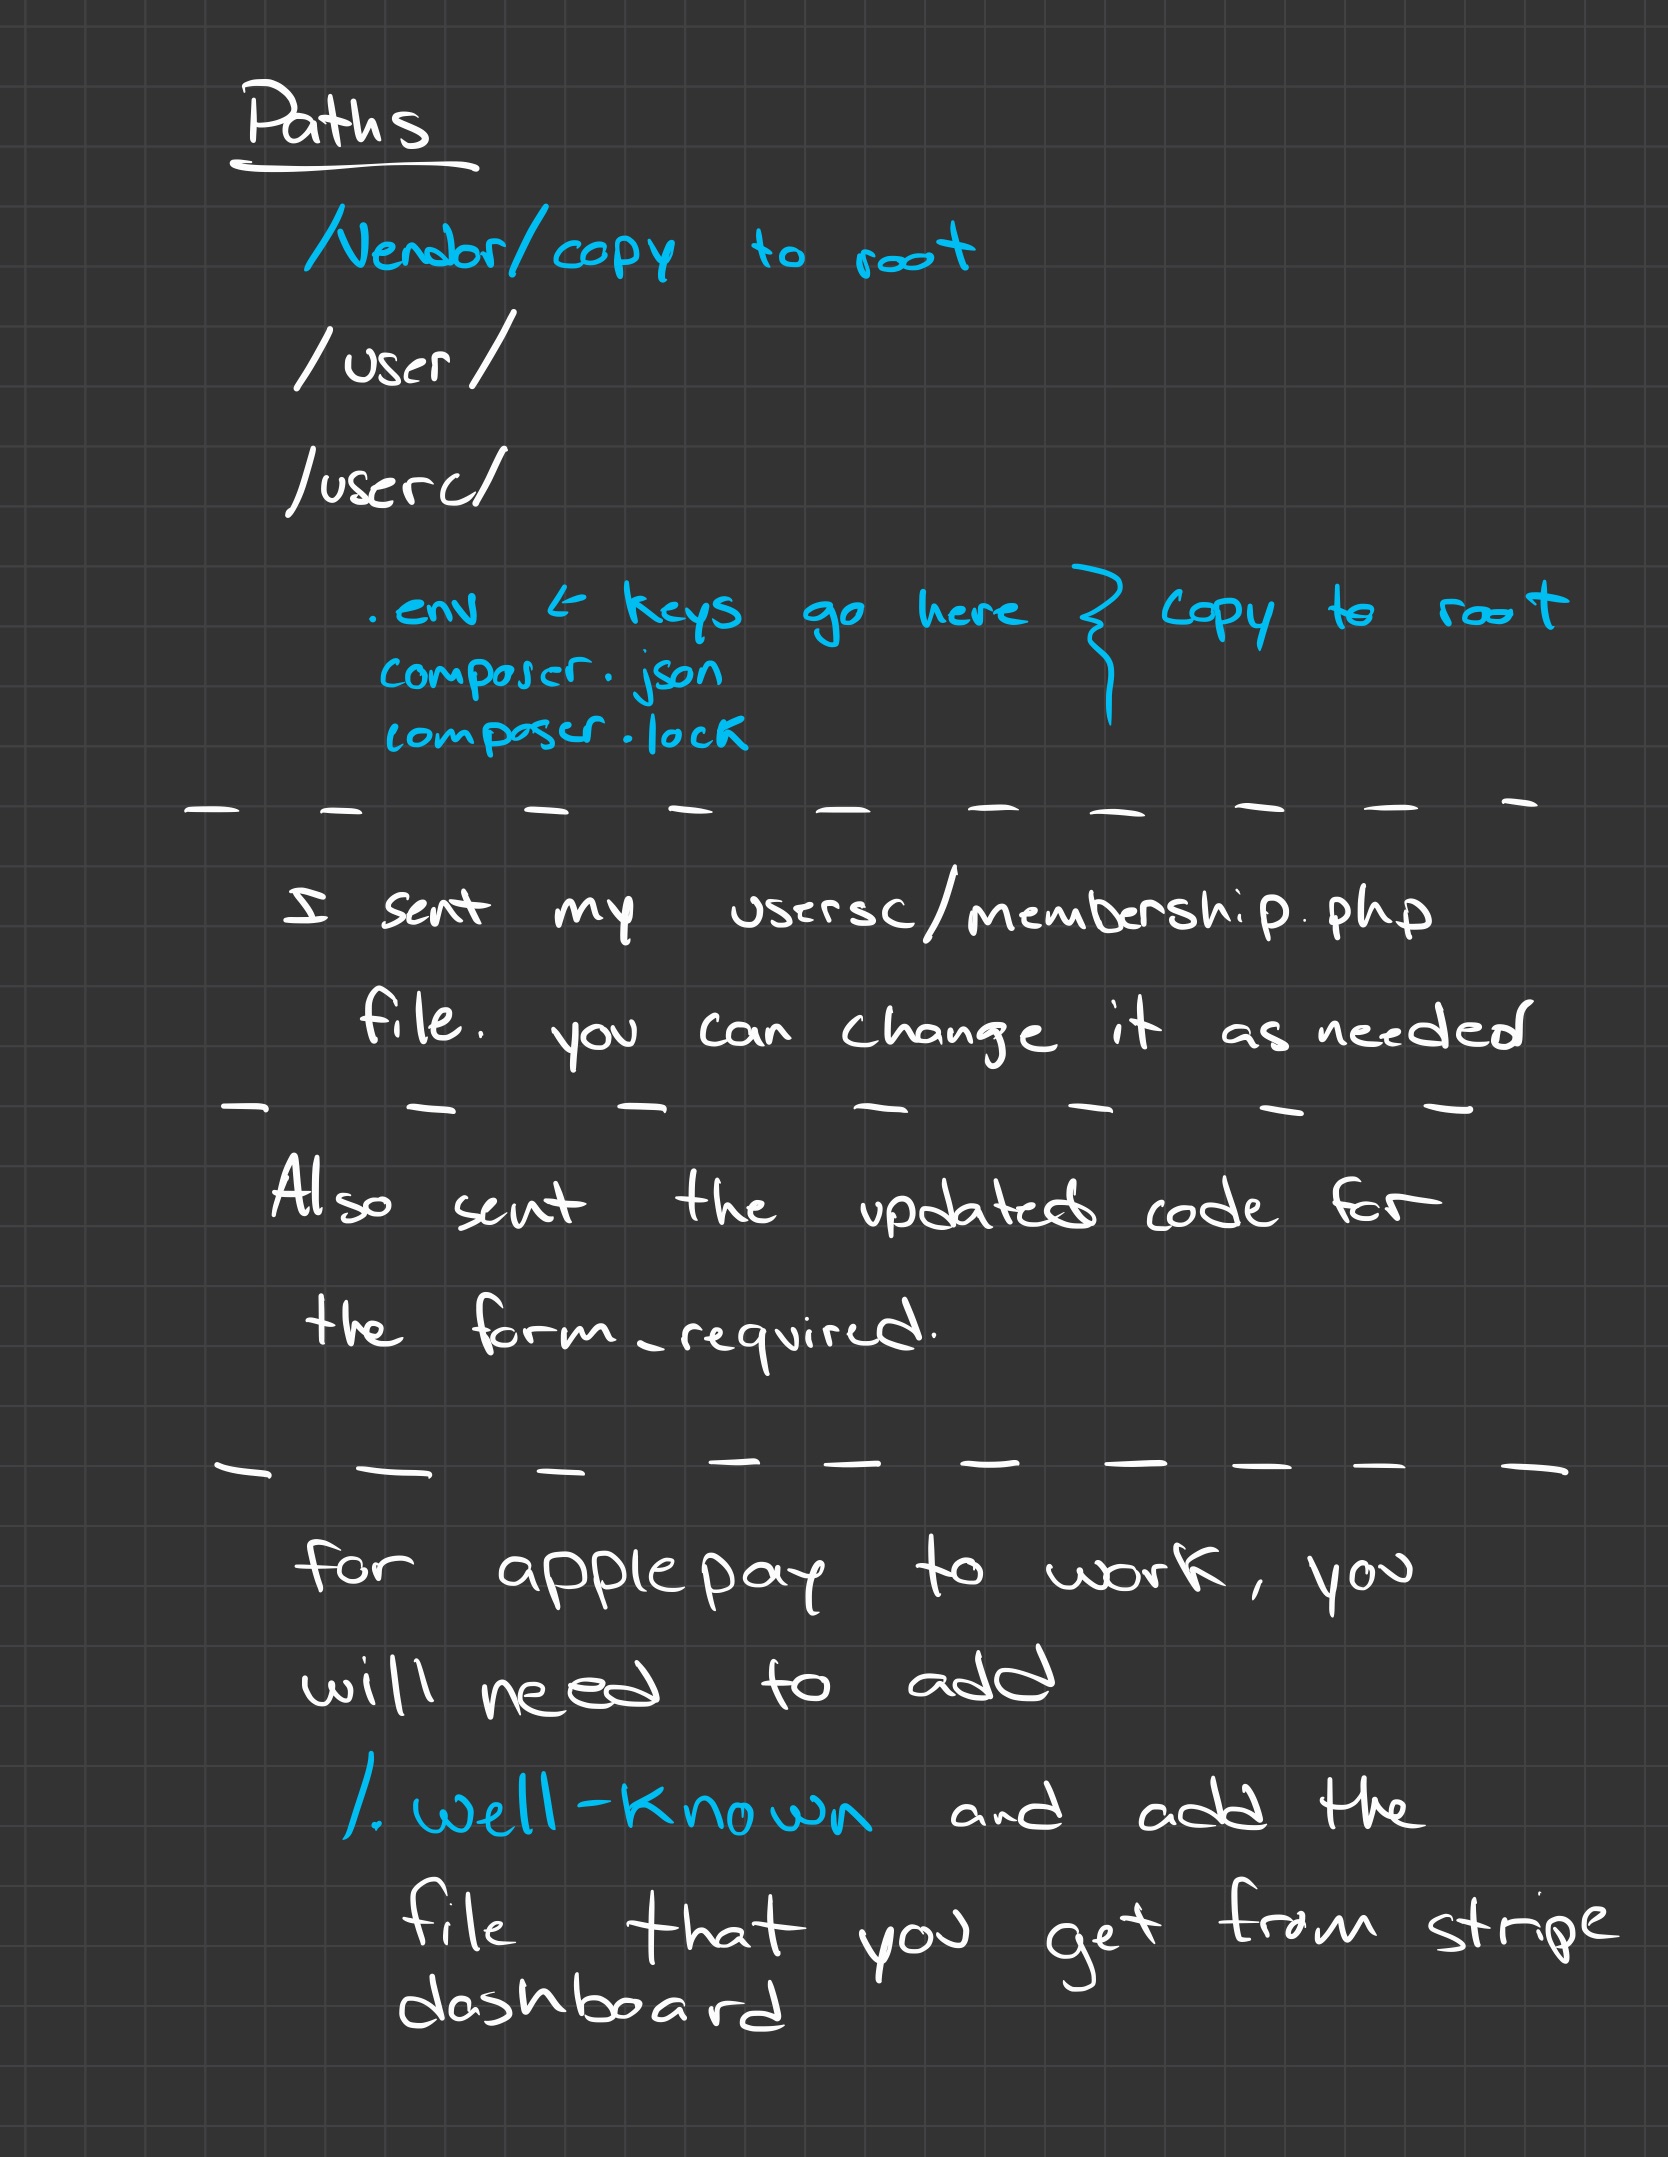 Paths
/Vendor/ copy to root
/user/
/userc/
.env ← keys go here } copy to root
composer.json
composer.lock
I sent my usersc/membership.php
file. you can change it as needed
Also sent the updated code for
the form_required.
for applepay to work, you
will need to add
/.well-known and add the
file that you get from stripe
dashboard